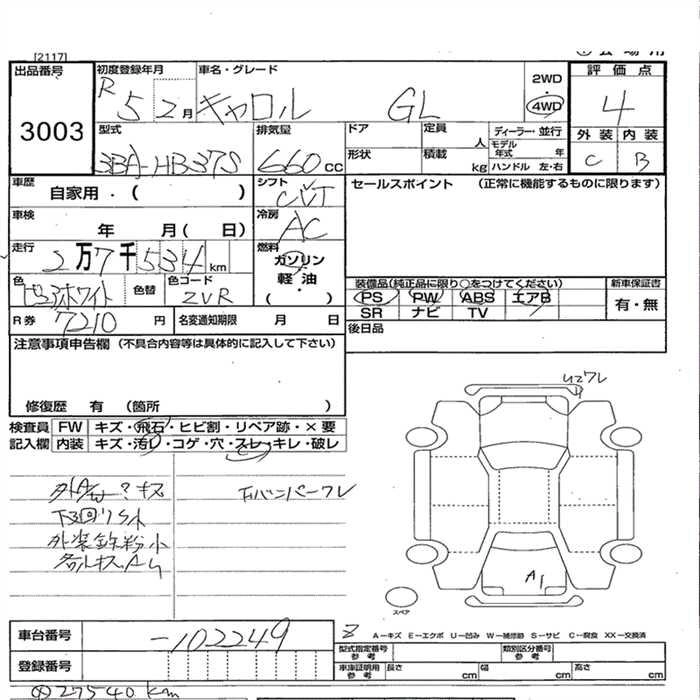 [2117]
出品番号 初度登録年月 車名・グレード 2WD 評価点
3003 R5 2月 キャロル GL 4WD 4
型式 排気量 ドア 定員 人 ディーラー・並行 外装 内装
3BA-HB37S 660cc 形状 積載 kg モデル年式 年 ハンドル 左・右 C B
車歴 自家用・( ) シフト CVT セールスポイント (正常に機能するものに限ります)
車検 年 月( 日) 冷房 AC
走行 2万7千534km 燃料 ガソリン
軽油
( )
色 ホワイト 色替 色コード ZVR
装備品(純正品に限り○をつけてください) 新車保証書
PS PW ABS エアB 有・無
SR ナビ TV
R券 7210円 名変通知期限 月 日 後日品
注意事項申告欄 (不具合内容等は具体的に記入して下さい)
修復歴 有 (箇所 )
検査員 FW キズ・飛石・ヒビ割・リペア跡・×要
記入欄 内装 キズ・汚レ・コゲ・穴・スレ・キレ・破レ
下バンパーワレ
A1
スペア
車台番号 -102249
A-キズ E-エクボ U-凹み W-補修跡 S-サビ C-腐食 XX-交換済
型式指定番号 参考 類別区分番号 参考
登録番号 車庫証明用 参考 長さ cm 幅 cm 高さ cm
27540km